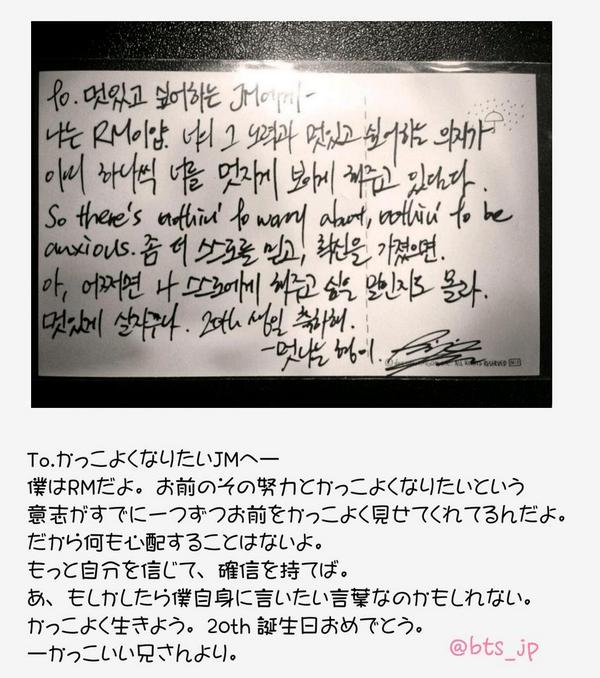 To. 멋있고 싶어하는 JM에게-
나는 RM이얌. 너의 그 노력과 멋있고 싶어하는 의지가
이미 하나씩 너를 멋지게 보이게 해주고 있단다.
So there's nothin' to worry about, nothin' to be
anxious. 좀 더 스스로를 믿고, 확신을 가졌으면.
아, 어쩌면 나 스스로에게 해주고 싶은 말인지도 몰라.
멋있게 살자꾸나. 20th 생일 축하해.
-멋나는 형이.
ALL RIGHTS RESERVED
To.かっこよくなりたいJMへー
僕はRMだよ。お前のその努力とかっこよくなりたいという
意志がすでに一つずつお前をかっこよく見せてくれてるんだよ。
だから何も心配することはないよ。
もっと自分を信じて、確信を持てば。
あ、もしかしたら僕自身に言いたい言葉なのかもしれない。
かっこよく生きよう。20th 誕生日おめでとう。
ーかっこいい兄さんより。
@bts_jp